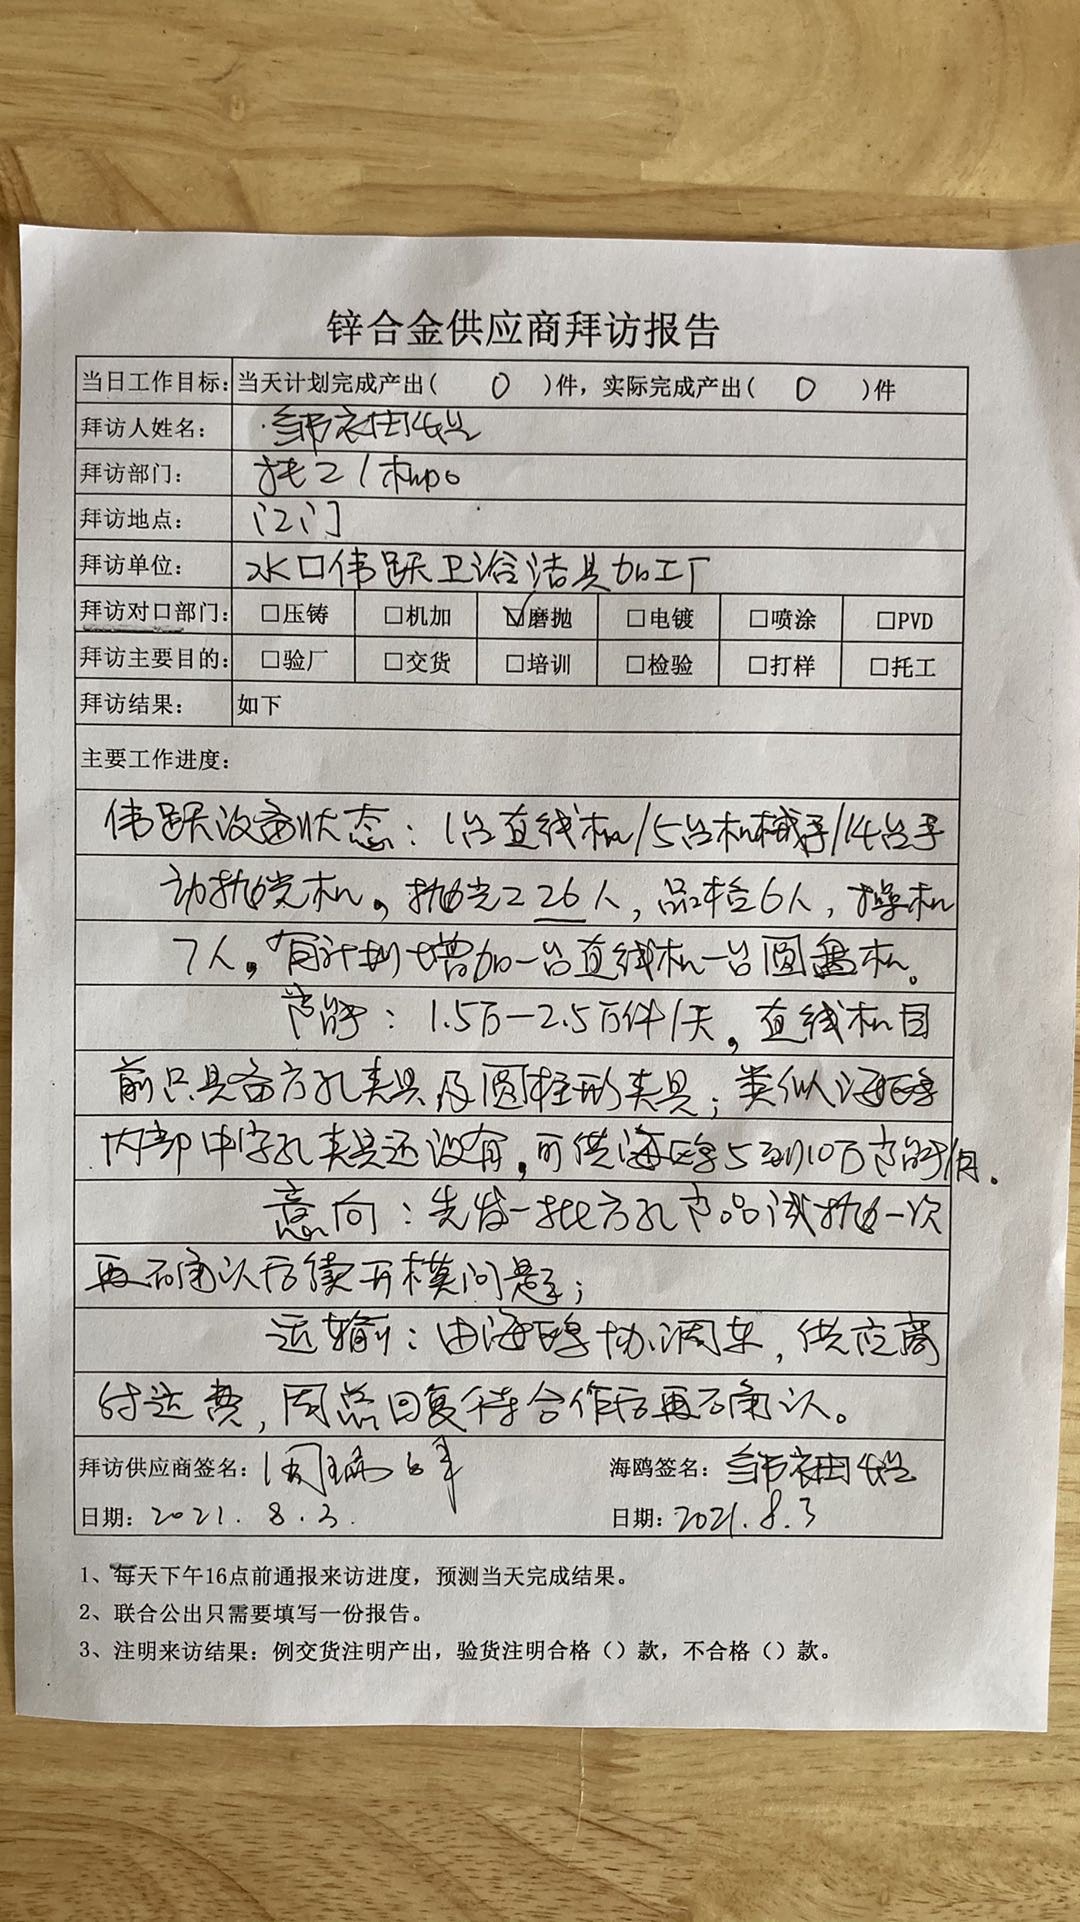 锌合金供应商拜访报告
当日工作目标: 当天计划完成产出( 0 )件, 实际完成产出( 0 )件
拜访人姓名:
拜访部门: 托工/机加
拜访地点: 江门
拜访单位: 水口伟跃卫浴洁具加工厂
拜访对口部门: □压铸 □机加 ☑磨抛 □电镀 □喷涂 □PVD
拜访主要目的: □验厂 □交货 □培训 □检验 □打样 □托工
拜访结果: 如下
主要工作进度:
伟跃设备状态: 1台直线机/5台机械手/14台手
动抛光机。抛光工26人, 品检6人, 操机
7人。有计划增加一台直线机一台圆盘机。
产能: 1.5万—2.5万件/天。直线机目
前只具备方孔夹具及圆柱形夹具; 类似海鸥
内部中字孔夹具还没有, 可供海鸥5到10万产能/月.
意向: 先发一批方孔产品试抛一次
再确认后续开模问题;
运输: 由海鸥协调车, 供应商
付运费, 周总回复待合作后再确认。
拜访供应商签名: 周 海鸥签名:
日期: 2021.8.3. 日期: 2021.8.3
1、每天下午16点前通报来访进度, 预测当天完成结果。
2、联合公出只需要填写一份报告。
3、注明来访结果: 例交货注明产出, 验货注明合格()款, 不合格()款。